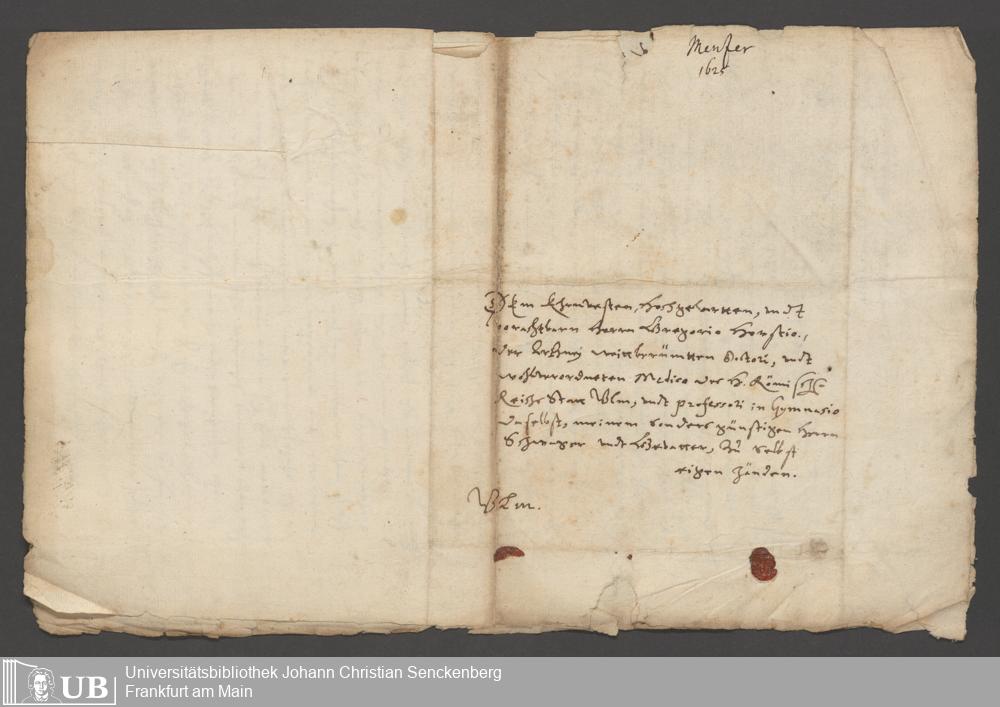 Menser
1625
Dem Ehrnvesten, Hochgelartten, undt
vorachtbarn Herrn Gregorio Horstio,
der Artzney weittberümtten Doctori, undt
wohlverordneten Medico des H. Römisch
Reichs Statt Ulm, undt professori in Gymnasio
daselbst, meinem sonders günstigen Herrn
Schwager undt Gevatter, Zu selbst
eigen händen.
Ulm.
UB
Universitätsbibliothek Johann Christian Senckenberg
Frankfurt am Main